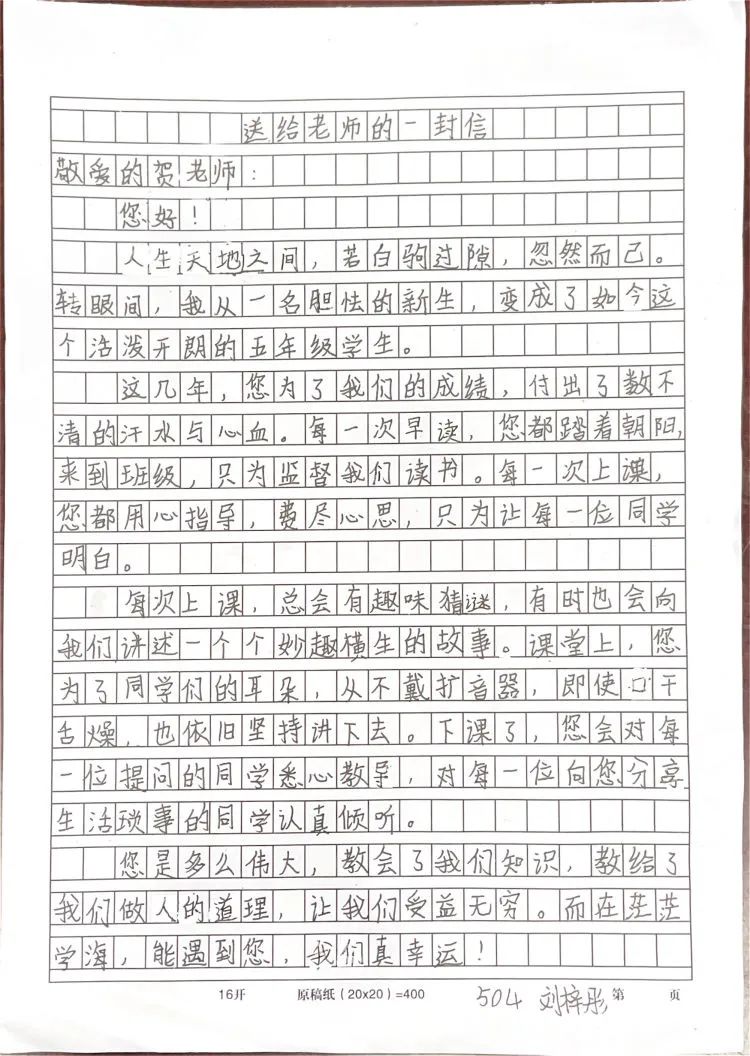 送给老师的一封信
敬爱的贺老师:
您好!
人生天地之间，若白驹过隙，忽然而已。
转眼间，我从一名胆怯的新生，变成了如今这
个活泼开朗的五年级学生。
这几年，您为了我们的成绩，付出了数不
清的汗水与心血。每一次早读，您都踏着朝阳，
来到班级，只为监督我们读书。每一次上课，
您都用心指导，费尽心思，只为让每一位同学
明白。
每次上课，总会有趣味猜谜，有时也会向
我们讲述一个个妙趣横生的故事。课堂上，您
为了同学们的耳朵，从不戴扩音器，即使口干
舌燥，也依旧坚持讲下去。下课了，您会对每
一位提问的同学悉心教导，对每一位向您分享
生活琐事的同学认真倾听。
您是多么伟大，教会了我们知识，教给了
我们做人的道理，让我们受益无穷。而在茫茫
学海，能遇到您，我们真幸运!
16开 原稿纸(20x20)=400 504 刘梓彤 第 页